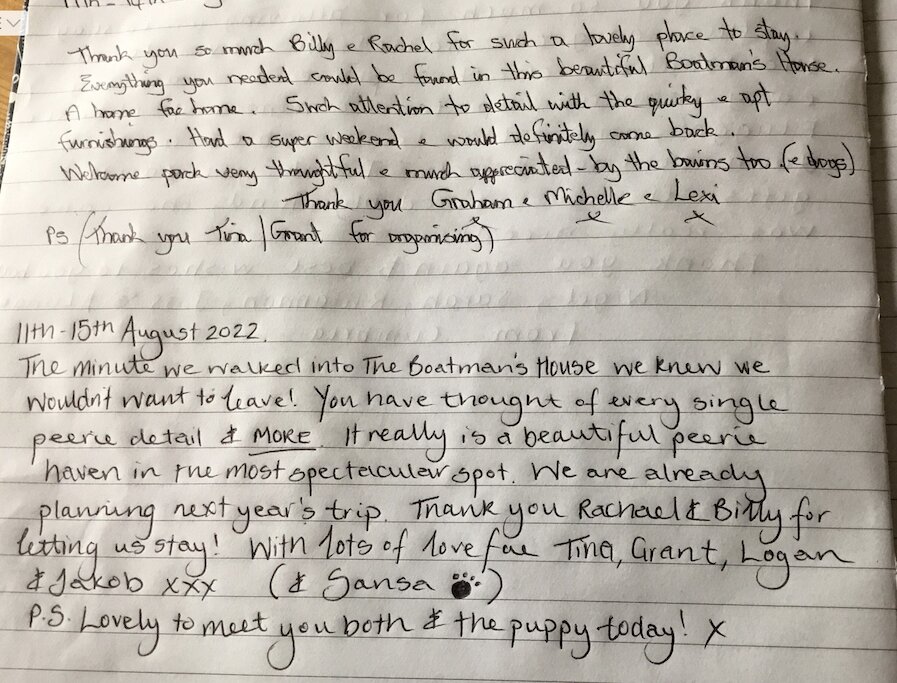 11th - 14th
Thank you so much Billy & Rachel for such a lovely place to stay.
Everything you needed could be found in this beautiful Boatman's House.
A home fae home. Such attention to detail with the quirky & apt
furnishings. Had a super weekend & would definitely come back.
Welcome pack very thoughtful & much appreciated - by the bairns too (& dogs)
Thank you Graham & Michelle & Lexi
x x x
Ps (Thank you Tina / Grant for organising)
11th-15th August 2022.
The minute we walked into The Boatman's House we knew we
wouldn't want to leave! You have thought of every single
peerie detail & MORE. It really is a beautiful peerie
haven in the most spectacular spot. We are already
planning next year's trip. Thank you Rachael & Billy for
letting us stay! With lots of love fae Tina, Grant, Logan
& Jakob xxx (& Sansa)
P.S. Lovely to meet you both & the puppy today! X